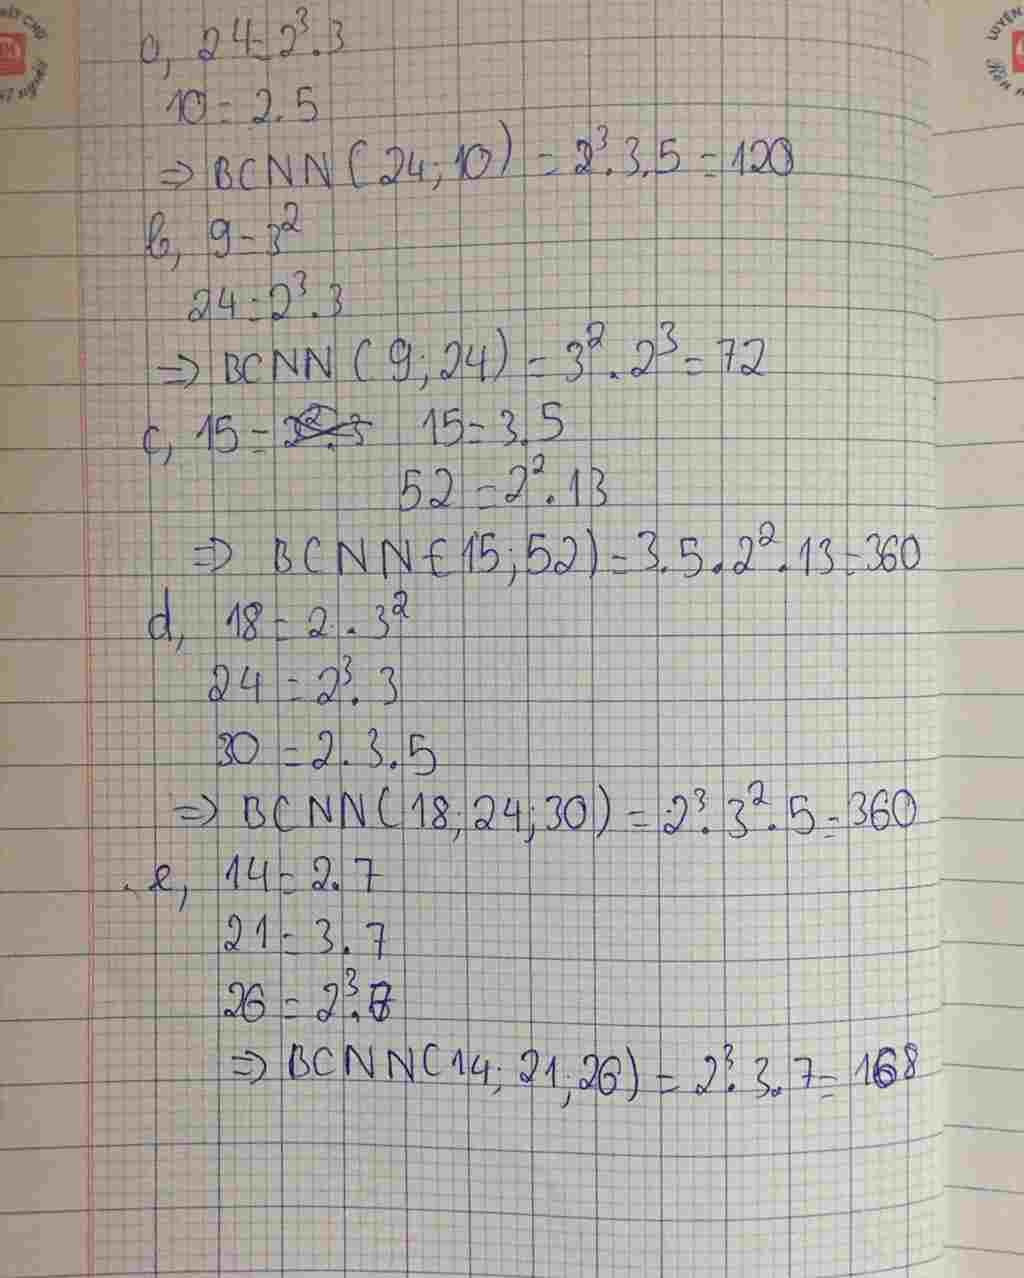 a, 24 = 2³.3
10 = 2.5
=> BCNN (24; 10) = 2³.3.5 = 120
b, 9 = 3²
24 = 2³.3
=> BCNN (9; 24) = 3².2³ = 72
c, 15 = 15 = 3.5
52 = 2².13
=> BCNN (15; 52) = 3.5.2².13 = 360
d, 18 = 2.3²
24 = 2³.3
30 = 2.3.5
=> BCNN (18; 24; 30) = 2³.3².5 = 360
e, 14 = 2.7
21 = 3.7
26 = 2³.
=> BCNN (14; 21; 26) = 2³.3.7 = 168
LUYỆN